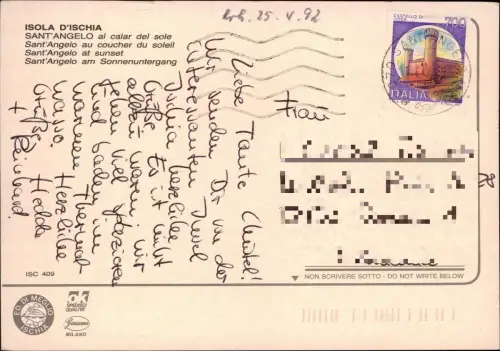 ISOLA D'ISCHIA
SANT'ANGELO al calar del sole
Sant'Angelo au coucher du soleil
Sant'Angelo at sunset
Sant'Angelo am Sonnenuntergang
25. V. 92
700
ITALIA
SANT'ANGELO
Liebe Tante Christel!
Wir senden Dir von der
interessanten Insel
Ischia herzliche
Grüße. Es ist nicht
allzu warm, wir
gehen viel spazieren
und baden im
warmen Thermal-
wasser. Herzliche
Grüße Hedda
+ Reinhard.
Frau
ISC 409
NON SCRIVERE SOTTO - DO NOT WRITE BELOW
ED. DI MEGLIO
ISCHIA
MILANO